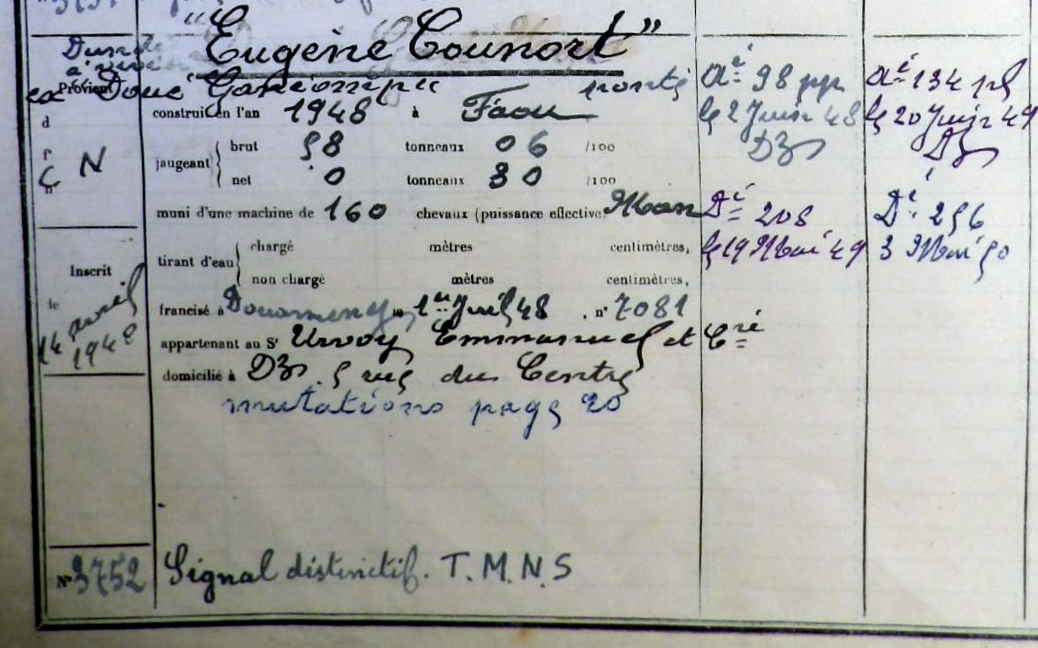 "Eugène Counort"
Dundee
Provient
ex Douc ponté
construit en l'an 1948 à Faou
N
jaugeant { brut 58 tonneaux 06 /100
net 0 tonneaux 30 /100
muni d'une machine de 160 chevaux (puissance effective Man
tirant d'eau { chargé mètres centimètres,
non chargé mètres centimètres,
Inscrit
le
14 avril
1948
francisé à Douarnenez le 1er Juil 48 . n° 7081
appartenant au Sr Urvoy Emmanuel et Cré
domicilié à DZ 5 rue du Centre
mutations page 20
N° 3752
Signal distinctif. T.M.N.S
Aé 98 pp
le 2 Juin 48
DZ
Dé 208
le 19 Mai 49
aé 134 pl
le 20 Juin 49
DZ
Dé 256
3 Mai 50